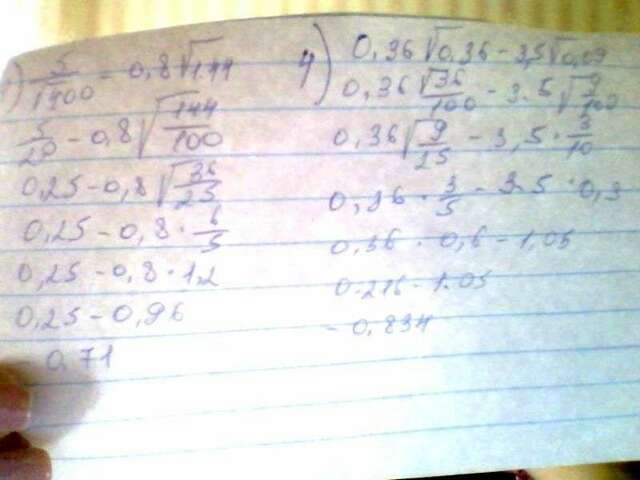 ) 5/√400 - 0,8√1.44
5/20 - 0,8√144/100
0,25 - 0,8√36/25
0,25 - 0,8 · 6/5
0,25 - 0,8 · 1.2
0,25 - 0,96
0,71
4) 0,36√0,36 - 3,5√0,09
0,36√36/100 - 3.5√9/100
0,36√9/25 - 3,5 · 3/10
0,36 · 3/5 - 3.5 · 0,3
0,36 · 0,6 - 1,05
0.216 - 1.05
- 0,834